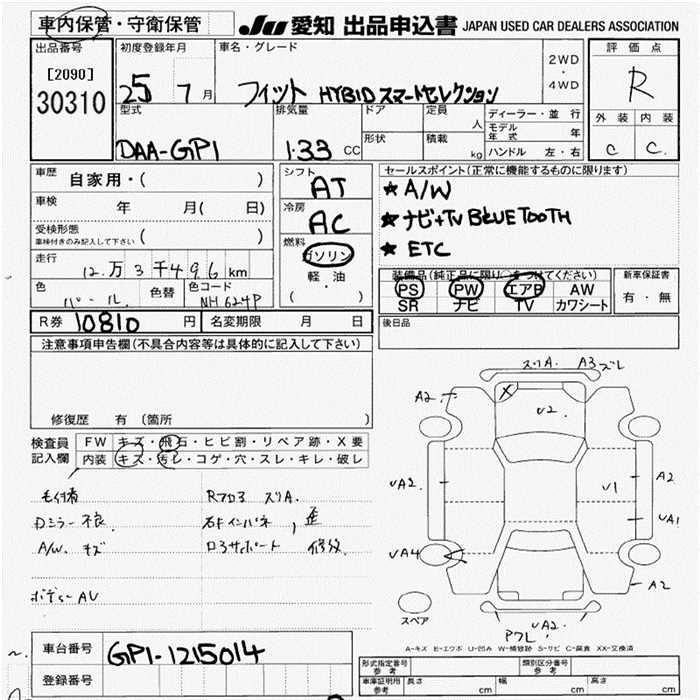 車内保管・守衛保管
JU 愛知 出品申込書 JAPAN USED CAR DEALERS ASSOCIATION
出品番号 [2090] 30310
初度登録年月 25 7月
車名・グレード フィット HYBID スマートセレクション
2WD・4WD
評価点 R
外装 C 内装 C.
型式 DAA-GP1
排気量 1.33 CC
ドア
形状
定員 人
積載 kg
ディーラー・並行
モデル年式 年
ハンドル 左・右
車歴 自家用・( )
車検 年 月( 日)
受検形態 車検付きのみ記入して下さい ( )
走行 12.万3千496 km
色 パール. 色替 色コード NH624P
シフト AT
冷房 AC
燃料 ガソリン
軽・油
( )
セールスポイント(正常に機能するものに限ります)
★ A/W
★ ナビ+TV BLUETOOTH
★ ETC
装備品(純正品に限り○をつけてください)
PS PW エアB AW
SR ナビ TV カワシート
新車保証書
有・無
R券 10810 円 名変期限 月 日
後日品
注意事項申告欄(不具合内容等は具体的に記入して下さい)
修復歴 有 〔箇所 〕
検査員記入欄
FW キズ・飛石・ヒビ割・リペア跡・X要
内装 キズ・汚レ・コゲ・穴・スレ・キレ・破レ
Dミラー不良
A/W. キズ
ボディーAU
Rフロア スリA.
右ドインパネ , 歪
ロアサポート 修交
スリA. A3 ズレ
A2
X
U2.
UA2
U1
A2
UA1
UA4
A2
UA2.
PワレL
スペア
A-キズ E-エクボ U-凹み W-補修跡 S-サビ C-腐食 XX-交換済
車台番号 GP1-1215014
登録番号
形式指定番号 参考
類別区分番号 参考
車庫証明用 参考 長さ cm 幅 cm 高さ cm